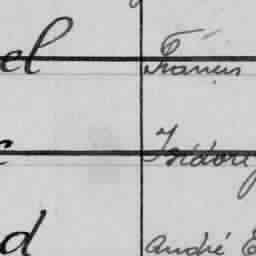 el Francis
c Isidore
d André E